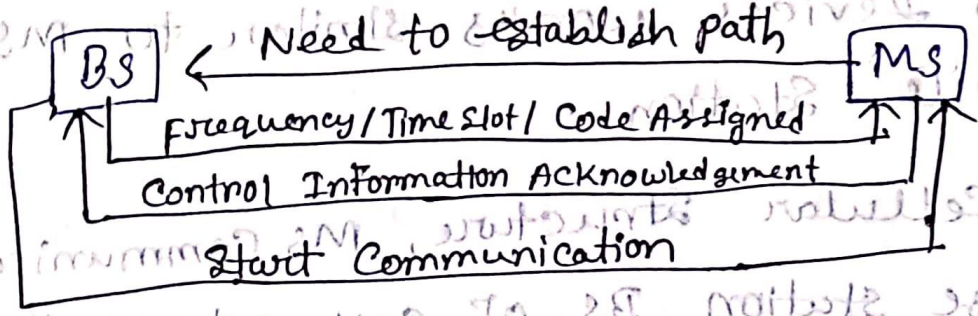 Need to establish path
BS
MS
Frequency/Time Slot/ Code Assigned
Control Information Acknowledgement
Start Communication